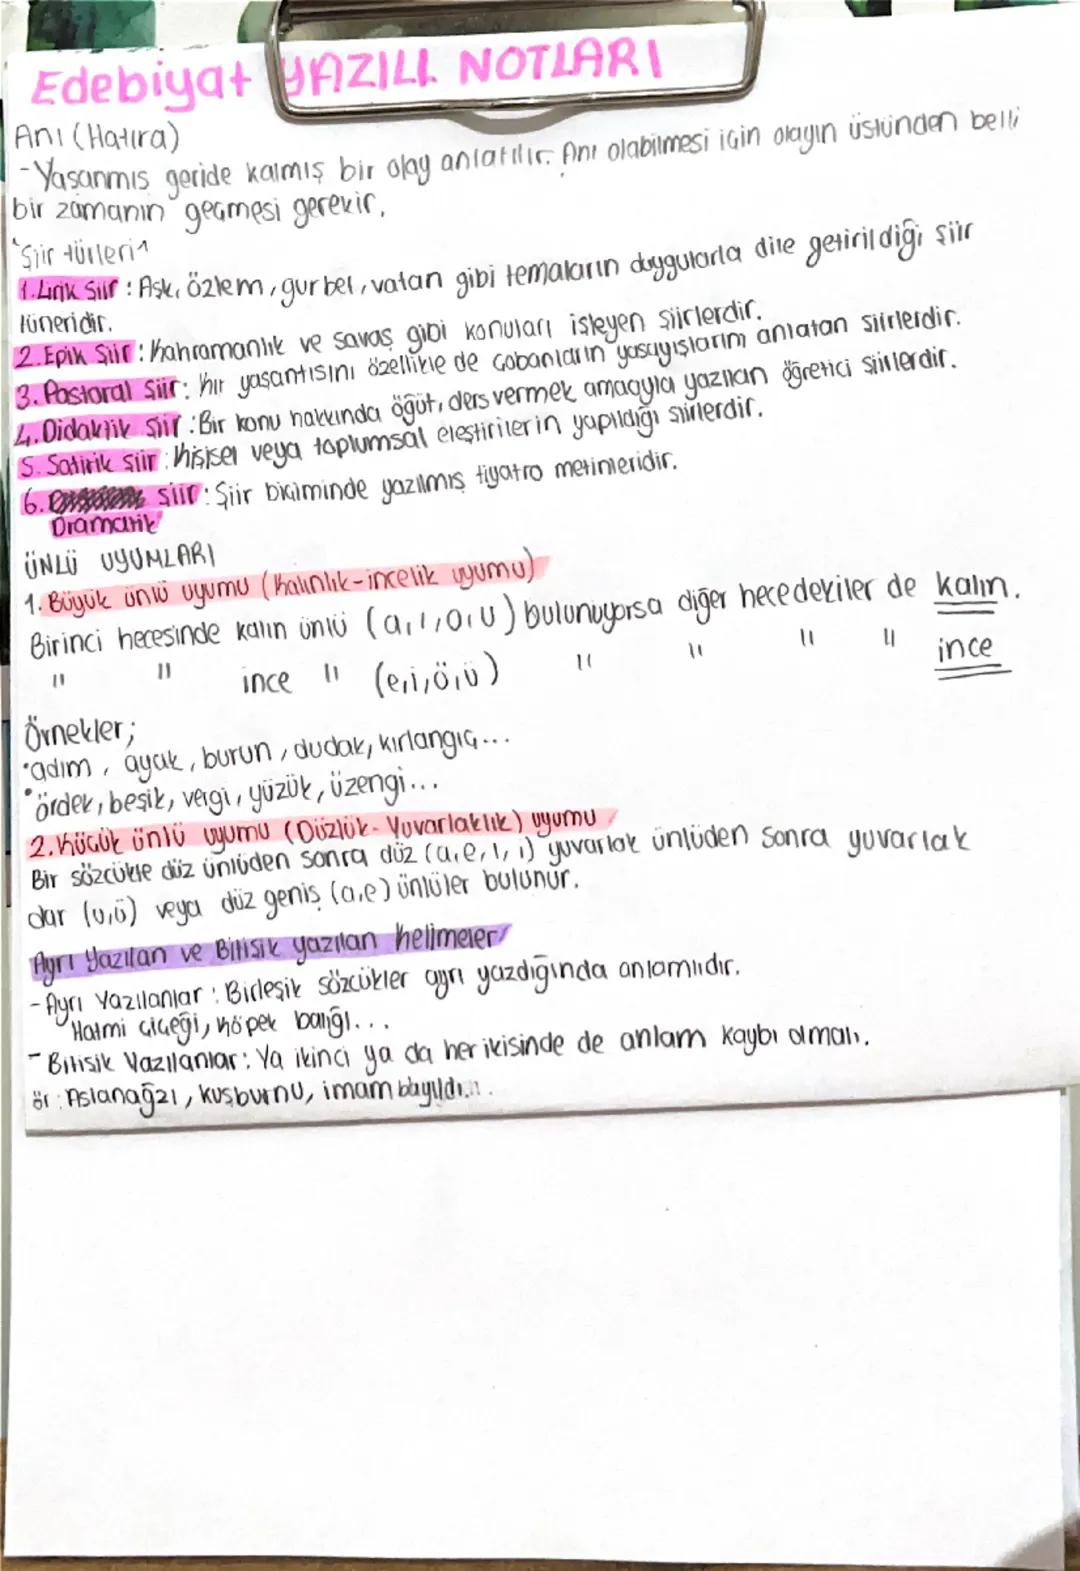 Edebiyat YAZILI NOTLARI
Anı (Hatıra)
- Yaşanmış geride kalmış bir olay anlatılır. Anı olabilmesi için olayın üstünden belli
bir zamanın geçmesi gerekir.
"Şiir türleri"
1. Lirik Şiir : Aşk, özlem, gurbet, vatan gibi temaların duygularla dile getirildiği şiir
türleridir.
2. Epik Şiir : Kahramanlık ve savaş gibi konuları işleyen şiirlerdir.
3. Pastoral Şiir : Kır yaşantısını özellikle de çobanların yaşayışlarım anlatan şiirlerdir.
4. Didaktik Şiir : Bir konu hakkında öğüt, ders vermek amacıyla yazılan öğretici şiirlerdir.
5. Satirik şiir : Kişisel veya toplumsal eleştirilerin yapıldığı şiirlerdir.
6. şiir : Şiir biçiminde yazılmış tiyatro metinleridir.
Dramatik
ÜNLÜ UYUMLARI
1. Büyük ünlü uyumu (Kalınlık-incelik uyumu)
Birinci hecesinde kalın ünlü (a,ı,o,u) bulunuyorsa diğer hecedekiler de kalın.
" " ince " (e,i,ö,ü) " " " " ince
Örnekler;
• adım, ayak, burun, dudak, kırlangıç...
• ördek, beşik, vergi, yüzük, üzengi...
2. Küçük ünlü uyumu (Düzlük-Yuvarlaklık) uyumu
Bir sözcükte düz ünlüden sonra düz (a,e,ı,i) yuvarlak ünlüden sonra yuvarlak
dar (u,ü) veya düz geniş (a,e) ünlüler bulunur.
Ayrı Yazılan ve Bitişik yazılan kelimeler
- Ayrı Yazılanlar : Birleşik sözcükler ayrı yazdığında anlamlıdır.
Hatmi çiçeği, köpek balığı...
- Bitişik Yazılanlar : Ya ikinci ya da her ikisinde de anlam kaybı olmalı.
ör : Aslanağzı, kuşburnu, imam bayıldı...